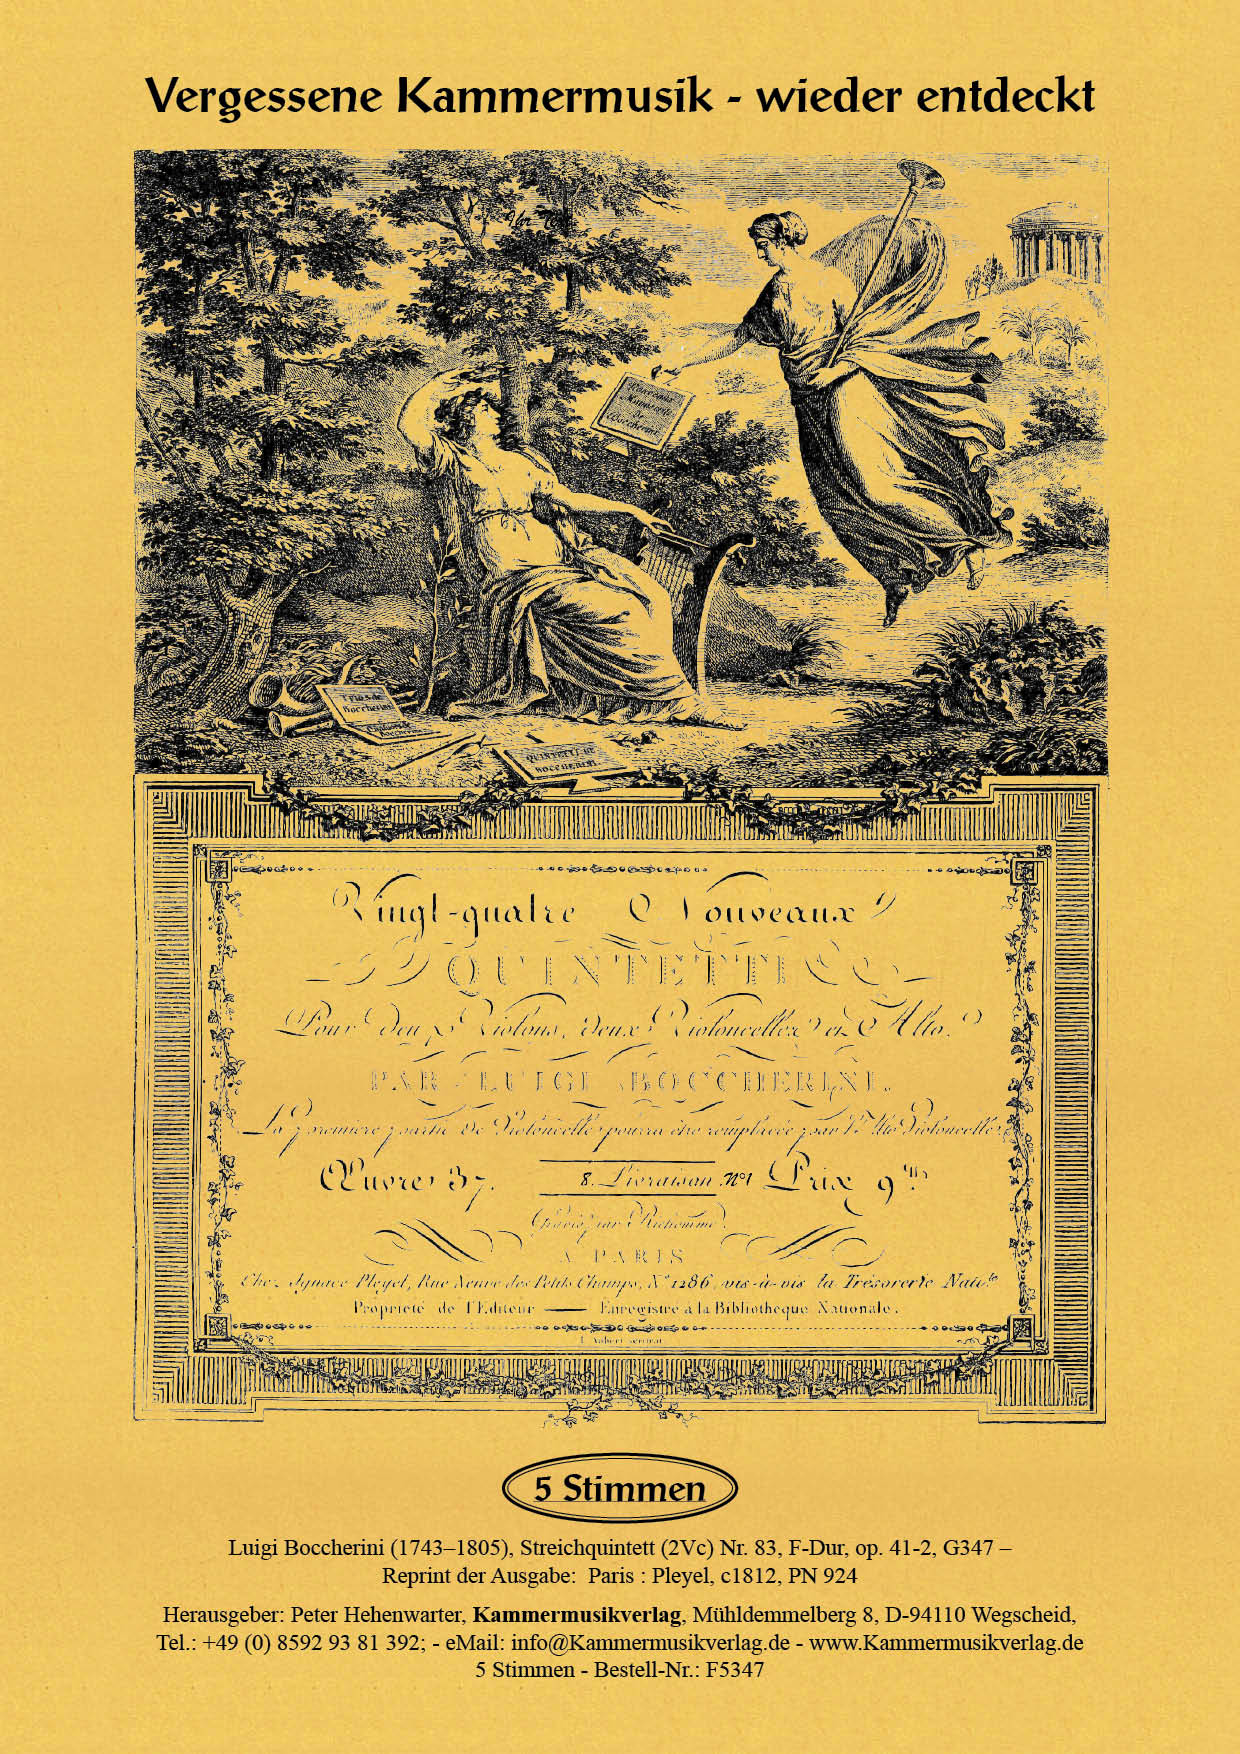 Vergessene Kammermusik - wieder entdeckt
Boccherini
Boccherini
QUINTETTI DE
BOCCHERINI
Vingt-quatre Nouveaux
QUINTETTI
Pour deux Violons, deux Violoncelles et Alto.
PAR LUIGI BOCCHERINI.
La premiere partie de Violoncelle pourra être remplacée par l'Alto Violoncelle
Œuvre 37. 8. Livraison . No 1 Prix 9
Gravés par Richomme
A PARIS
Chez Ignace Pleyel, Rue Neuve des Petits Champs, No 1286, vis-à-vis la Trésorerie Natle
Propriété de l'Editeur — Enregistré à la Bibliotheque Nationale.
5 Stimmen
Luigi Boccherini (1743–1805), Streichquintett (2Vc) Nr. 83, F-Dur, op. 41-2, G347 –
Reprint der Ausgabe: Paris : Pleyel, c1812, PN 924
Herausgeber: Peter Hehenwarter, Kammermusikverlag, Mühldemmelberg 8, D-94110 Wegscheid,
Tel.: +49 (0) 8592 93 81 392; - eMail: info@Kammermusikverlag.de - www.Kammermusikverlag.de
5 Stimmen - Bestell-Nr.: F5347